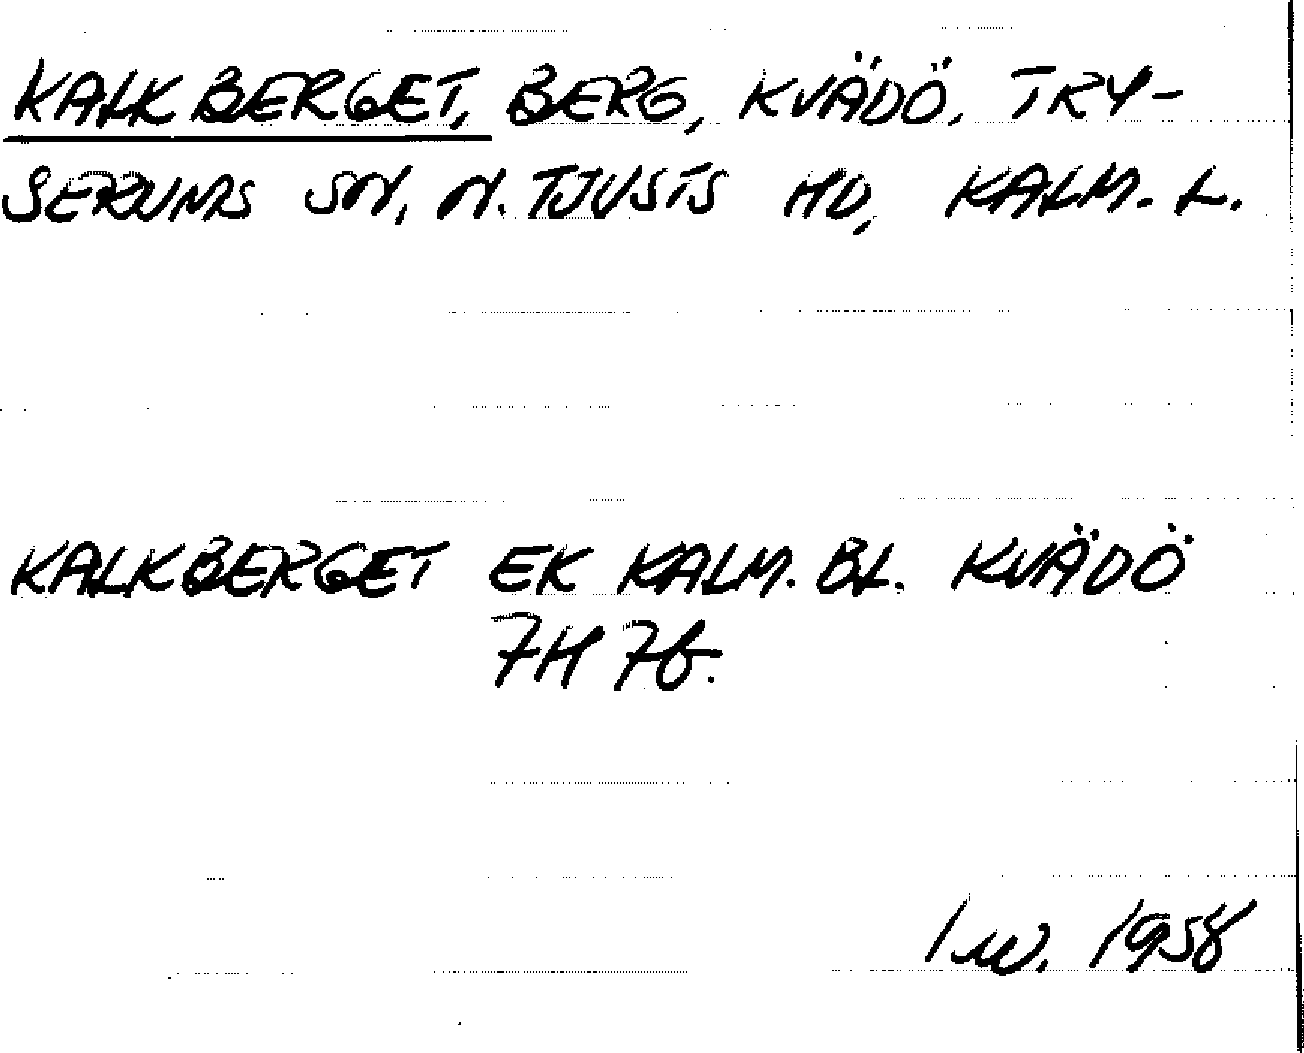 KALKBERGET, BERG, KVÄDÖ, TRY-
SERUMS SN, N. TJUSTS HD, KALM. L.
KALKBERGET EK KALM. BL. KVÄDÖ
7H 7f.
1958